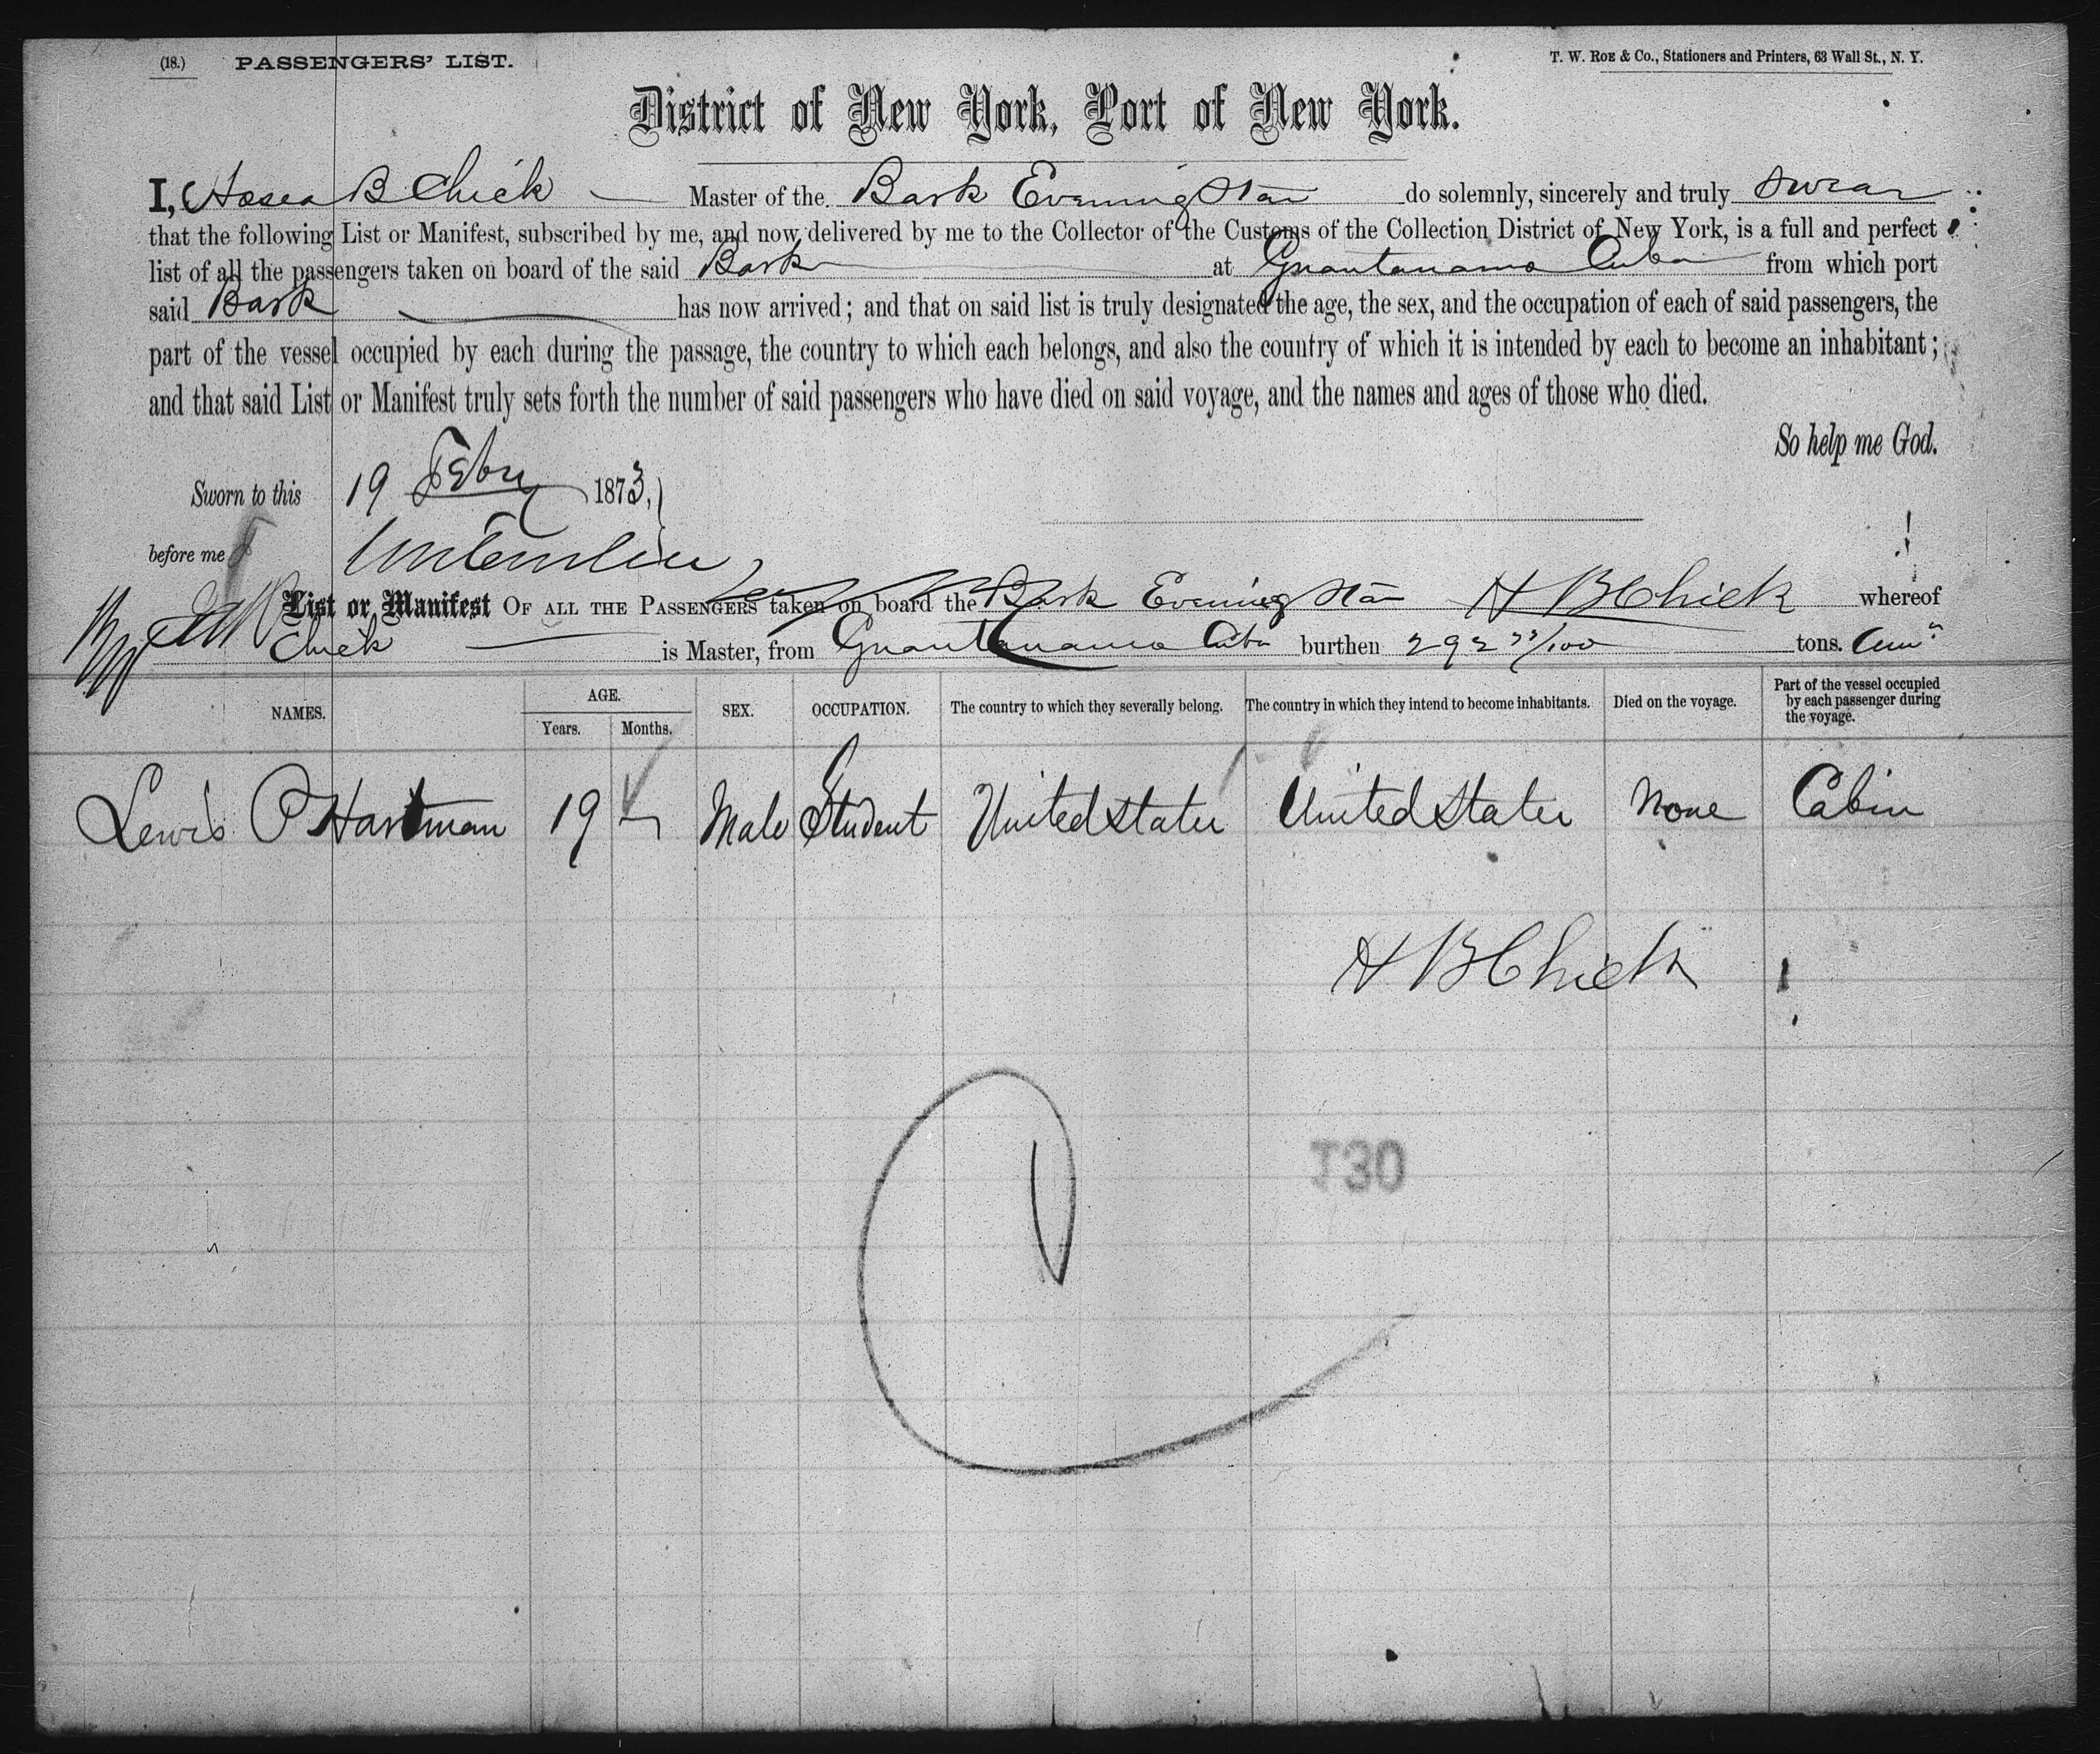 (18.) PASSENGERS' LIST. T. W. ROE & Co., Stationers and Printers, 63 Wall St., N. Y.
District of New York, Port of New York.
I, Hosea B Chick Master of the Bark Evening Star do solemnly, sincerely and truly swear
that the following List or Manifest, subscribed by me, and now delivered by me to the Collector of the Customs of the Collection District of New York, is a full and perfect
list of all the passengers taken on board of the said Bark at Guantanamo Cuba from which port
said Bark has now arrived; and that on said list is truly designated the age, the sex, and the occupation of each of said passengers, the
part of the vessel occupied by each during the passage, the country to which each belongs, and also the country of which it is intended by each to become an inhabitant;
and that said List or Manifest truly sets forth the number of said passengers who have died on said voyage, and the names and ages of those who died.
So help me God.
Sworn to this 19 Feby 1873,
before me
List or Manifest OF ALL THE PASSENGERS taken on board the Bark Evening Star H B Chick whereof
Chick is Master, from Guantanamo Cuba burthen 292 tons.
NAMES. AGE. Years. Months. SEX. OCCUPATION. The country to which they severally belong. The country in which they intend to become inhabitants. Died on the voyage. Part of the vessel occupied by each passenger during the voyage.
Lewis P Hartman 19 Male Student United States United States None Cabin
H B Chick
130